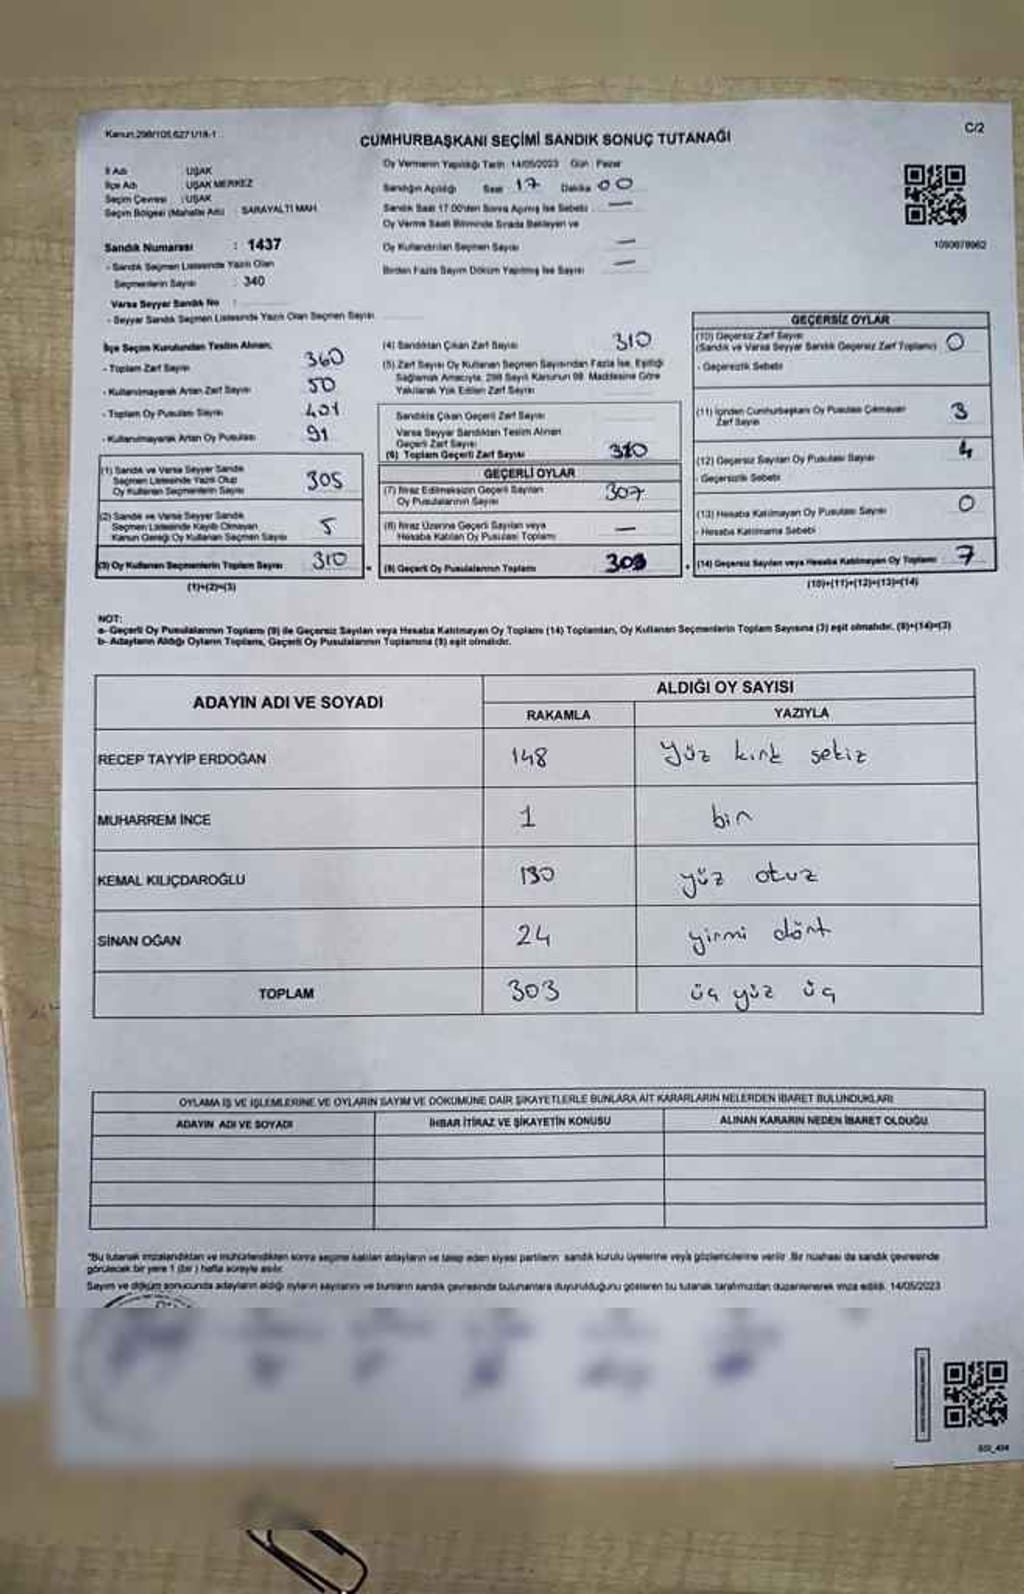 Kanun:298/105 6271/18-1
C/2
CUMHURBAŞKANI SEÇİMİ SANDIK SONUÇ TUTANAĞI
İl Adı : UŞAK
İlçe Adı : UŞAK MERKEZ
Seçim Çevresi : UŞAK
Seçim Bölgesi (Mahalle Adı) : SARAYALTI MAH.
Sandık Numarası : 1437
- Sandık Seçmen Listesinde Yazılı Olan
Seçmenlerin Sayısı : 340
Varsa Seyyar Sandık No :
- Seyyar Sandık Seçmen Listesinde Yazılı Olan Seçmen Sayısı
Oy Vermenin Yapıldığı Tarih 14/05/2023 Gün Pazar
Sandığın Açıldığı Saat 17 Dakika 00
Sandık Saat 17.00'den Sonra Açılmış İse Sebebi —
Oy Verme Saati Bitiminde Sırada Bekleyen ve
Oy Kullandırılan Seçmen Sayısı —
Birden Fazla Sayım Döküm Yapılmış İse Sayısı —
1090679962
İlçe Seçim Kurulundan Teslim Alınan;
- Toplam Zarf Sayısı 360
- Kullanılmayarak Artan Zarf Sayısı 50
- Toplam Oy Pusulası Sayısı 401
- Kullanılmayarak Artan Oy Pusulası 91
(1) Sandık ve Varsa Seyyar Sandık
Seçmen Listesinde Yazılı Olup
Oy Kullanan Seçmenlerin Sayısı 305
(2) Sandık ve Varsa Seyyar Sandık
Seçmen Listesinde Kayıtlı Olmayan
Kanun Gereği Oy Kullanan Seçmen Sayısı 5
(3) Oy Kullanan Seçmenlerin Toplam Sayısı 310
(1)+(2)=(3)
(4) Sandıktan Çıkan Zarf Sayısı 310
(5) Zarf Sayısı Oy Kullanan Seçmen Sayısından Fazla İse, Eşitliği
Sağlamak Amacıyla, 298 Sayılı Kanunun 98. Maddesine Göre
Yakılarak Yok Edilen Zarf Sayısı
Sandıkta Çıkan Geçerli Zarf Sayısı
Varsa Seyyar Sandıktan Teslim Alınan
Geçerli Zarf Sayısı
(6) Toplam Geçerli Zarf Sayısı 310
GEÇERLİ OYLAR
(7) İtiraz Edilmeksizin Geçerli Sayılan
Oy Pusulalarının Sayısı 307
(8) İtiraz Üzerine Geçerli Sayılan veya
Hesaba Katılan Oy Pusulası Toplamı —
(9) Geçerli Oy Pusulalarının Toplamı 303
GEÇERSİZ OYLAR
(10) Geçersiz Zarf Sayısı
(Sandık ve Varsa Seyyar Sandık Geçersiz Zarf Toplamı) 0
- Geçersizlik Sebebi
(11) İçinden Cumhurbaşkanı Oy Pusulası Çıkmayan
Zarf Sayısı 3
(12) Geçersiz Sayılan Oy Pusulası Sayısı 4
- Geçersizlik Sebebi
(13) Hesaba Katılmayan Oy Pusulası Sayısı 0
- Hesaba Katılmama Sebebi
(14) Geçersiz Sayılan veya Hesaba Katılmayan Oy Toplamı 7
(10)+(11)+(12)+(13)=(14)
NOT:
a- Geçerli Oy Pusulalarının Toplamı (9) ile Geçersiz Sayılan veya Hesaba Katılmayan Oy Toplamı (14) Toplamları, Oy Kullanan Seçmenlerin Toplam Sayısına (3) eşit olmalıdır. (9)+(14)=(3)
b- Adayların Aldığı Oyların Toplamı, Geçerli Oy Pusulalarının Toplamına (9) eşit olmalıdır.
ADAYIN ADI VE SOYADI
ALDIĞI OY SAYISI
RAKAMLA YAZIYLA
RECEP TAYYİP ERDOĞAN 148 yüz kırk sekiz
MUHARREM İNCE 1 bir
KEMAL KILIÇDAROĞLU 130 yüz otuz
SİNAN OĞAN 24 yirmi dört
TOPLAM 303 üç yüz üç
OYLAMA İŞ VE İŞLEMLERİNE VE OYLARIN SAYIM VE DÖKÜMÜNE DAİR ŞİKAYETLERLE BUNLARA AİT KARARLARIN NELERDEN İBARET BULUNDUKLARI
ADAYIN ADI VE SOYADI İHBAR İTİRAZ VE ŞİKAYETİN KONUSU ALINAN KARARIN NEDEN İBARET OLDUĞU
*Bu tutanak imzalandıktan ve mühürlendikten sonra seçime katılan adayların ve talep eden siyasi partilerin sandık kurulu üyelerine veya gözlemcilerine verilir. Bir nüshası da sandık çevresinde
görülecek bir yere 1 (bir) hafta süreyle asılır.
Sayım ve döküm sonucunda adayların aldığı oyların sayılarını ve bunların sandık çevresinde bulunanlara duyurulduğunu gösteren bu tutanak tarafımızdan düzenlenerek imza edildi. 14/05/2023